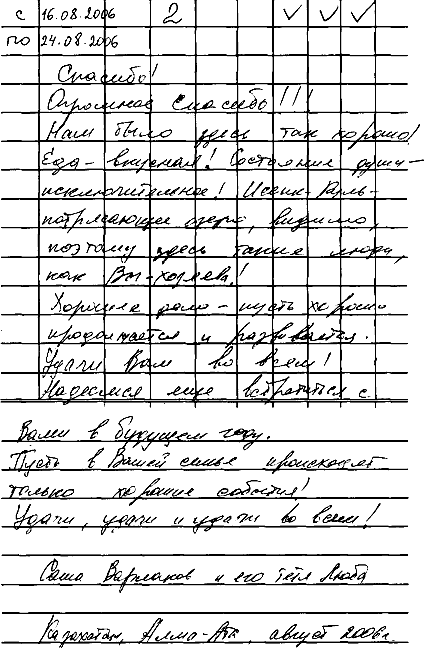 с 16.08.2006 2 ✓ ✓ ✓
по 24.08.2006
Спасибо!
Огромное спасибо!!!
Нам было здесь так хорошо!
Еда - вкусная! Состояние души -
исключительное! Иссык-Куль -
потрясающее озеро, видимо,
поэтому здесь такие люди,
как Вы - хозяева!
Хорошее дело - пусть хорошо
продолжается и развивается.
Удачи Вам во всем!
Надеемся еще встретиться с
Вами в будущем году.
Пусть в Вашей семье происходят
только хорошие события!
Удачи, удачи и удачи во всем!
Саша и его тетя Люба
Казахстан, Алма-Ата, август 2006г.